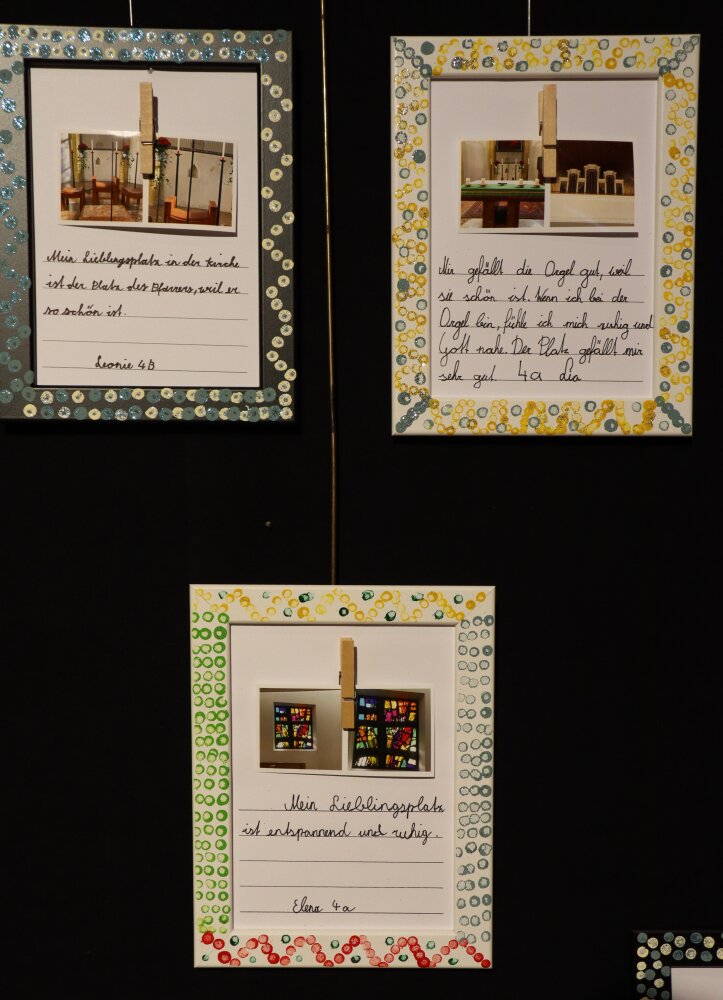 Mein Lieblingsplatz in der Kirche
ist der Platz des Pfarrers, weil er
so schön ist.
Leonie 4B
Mir gefällt die Orgel gut, weil
sie schön ist. Wenn ich bei der
Orgel bin, fühle ich mich ruhig und
Gott nahe. Der Platz gefällt mir
sehr gut. 4a Lia
Mein Lieblingsplatz
ist entspannend und ruhig.
Elena 4a